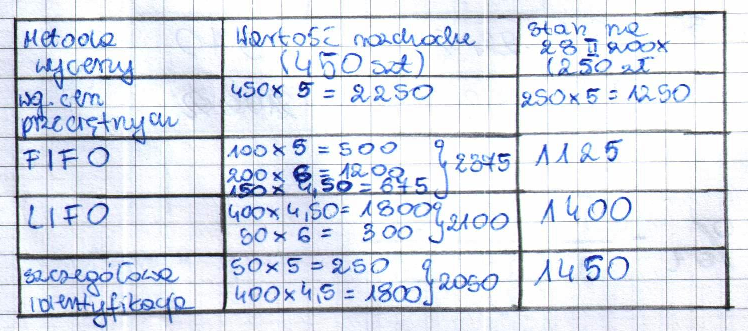 Metoda wyceny
Wartość rozchodu (450 szt)
Stan na 28 II 200x (250 szt
wg. cen przeciętnych
450 x 5 = 2250
250 x 5 = 1250
FIFO
100 x 5 = 500
200 x 6 = 1200
150 x 4,50 = 675
} 2375
1125
LIFO
400 x 4,50 = 1800
50 x 6 = 300
} 2100
1400
szczegółowa identyfikacja
50 x 5 = 250
400 x 4,5 = 1800
} 2050
1450